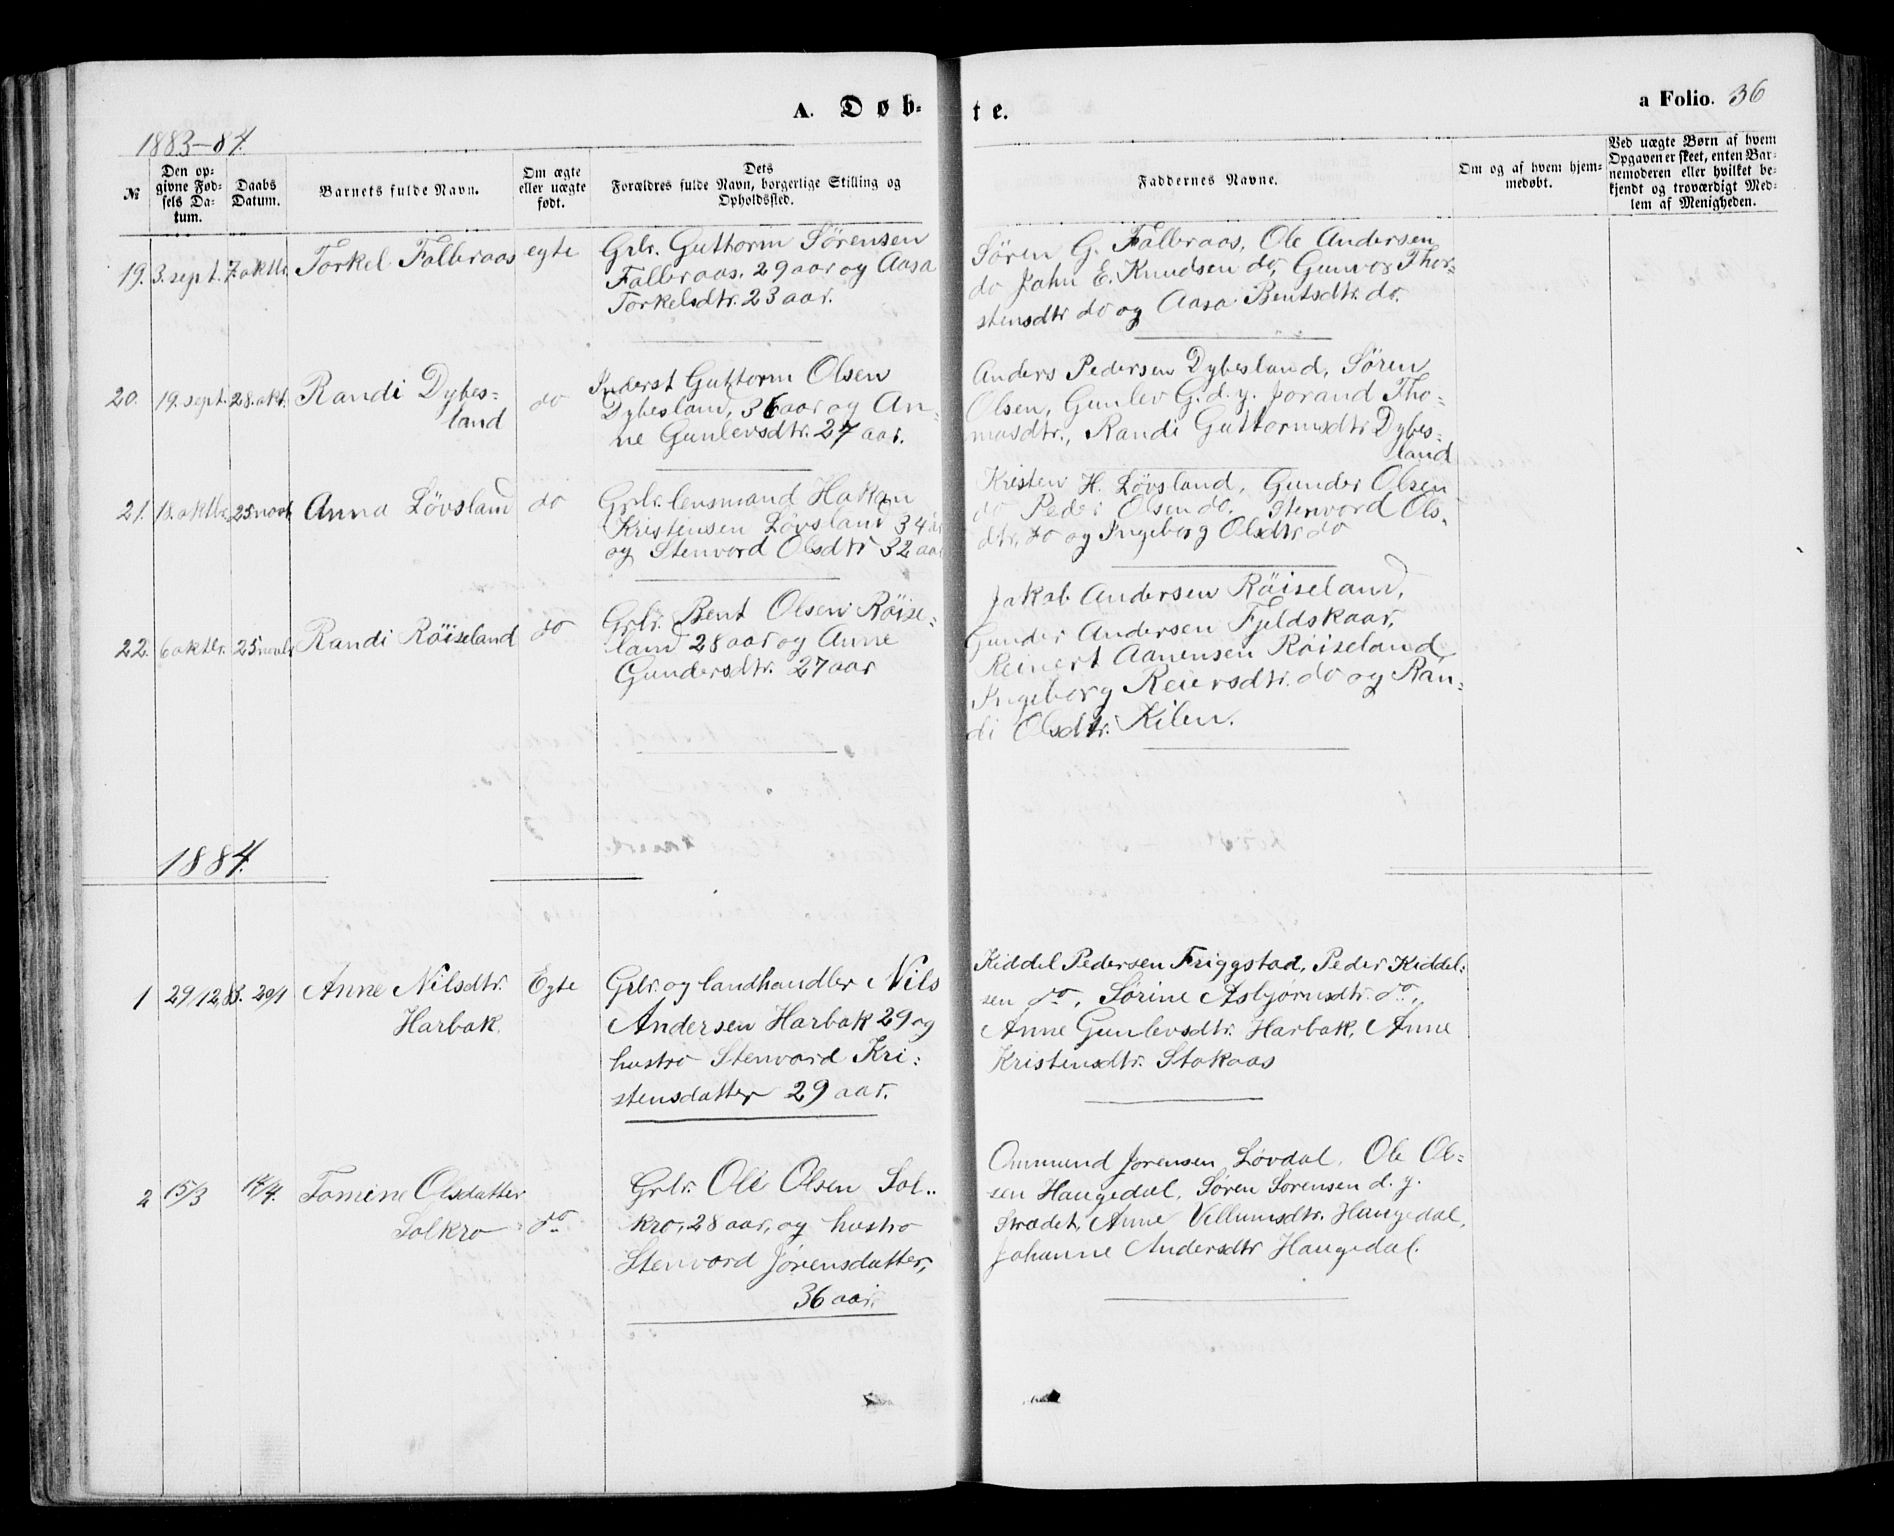 A. Døb-
te.
a Folio. 36
1883-84.
№
Den op-
givne Fød-
sels Da-
tum.
Daabs
Datum.
Barnets fulde Navn.
Om ægte
eller uægte
født.
Dets
Forældres fulde Navn, borgerlige Stilling og
Opholdssted.
Faddernes Navne.
Om og af hvem hjem-
medøbt.
Ved uægte Børn af hvem
Opgaven er skeet, enten Bar-
nemoderen eller hvilket be-
kjendt og troværdigt Med-
lem af Menigheden.
19. 3. sept. 7. oktbr. Torkel Falbraas egte
Grbr. Guttorm Sörensen
Falbraas. 29 aar og Aasa
Torkelsdtr. 23 aar.
Sören G. Falbraas, Ole Andersen
do John E. Knudsen do, Gunvor Thor-
stensdtr do og Aasa Bentsdtr. do.
20. 19. sept. 28. okt. Randi Dybes-
land
do
Inderst Guttorm Olsen
Dybesland, 36 aar og An-
ne Gunlevsdtr. 27 aar.
Anders Pedersen Dybesland, Sören
Olsen, Gunlev G. d. y. Jorand Tho-
masdtr., Randi Guttormsdtr Dybes-
land
21. 18. oktbr. 25 novb Anna Lövsland do
Grbr. lensmand Hakon
Kristensen Lövsland 34 år
og Stenvord Olsdtr 32 aar
Kristen H. Lövsland, Gunder Olsen
do Peder Olsen do. Stenvord Ols-
dtr. do og Ingeborg Olsdtr do
22. 6 oktbr. 25 novbr Randi Röiseland do
Grbr. Bent Olsen Röise-
land 28 aar og Anne
Gundersdtr. 27 aar
Jakob Andersen Röiseland,
Gunder Andersen Fjeldskaar,
Reinert Aanensen Röiseland
Ingeborg Reiersdtr. do og Ran-
di Olsdtr. Kilen.
1884.
1 29/12 83. 20/1 Anne Nilsdtr.
Harbak.
Egte
Grbr. og landhandler Nils
Andersen Harbak 29 og
hustro Stenvord Kri-
stensdatter 29 aar.
Kiddel Pedersen Friggstad, Peder Kiddel-
sen do, Sørine Asbjørnsdtr. do,
Anne Gunlevsdtr. Harbak, Anne
Kristensdtr. Stokaas
2 15/3 14/4. Tomine Olsdatter
Solkro
do
Grbr. Ole Olsen Sol-
kro, 28 aar, og hustro
Stenvord Jörensdatter,
36 aar.
Ommund Jørensen Løvdal, Ole Ol-
sen Haugedal, Søren Sørensen d. y.
Strædet, Anne Villumsdtr. Haugedal,
Johanne Andersdtr Haugedal.